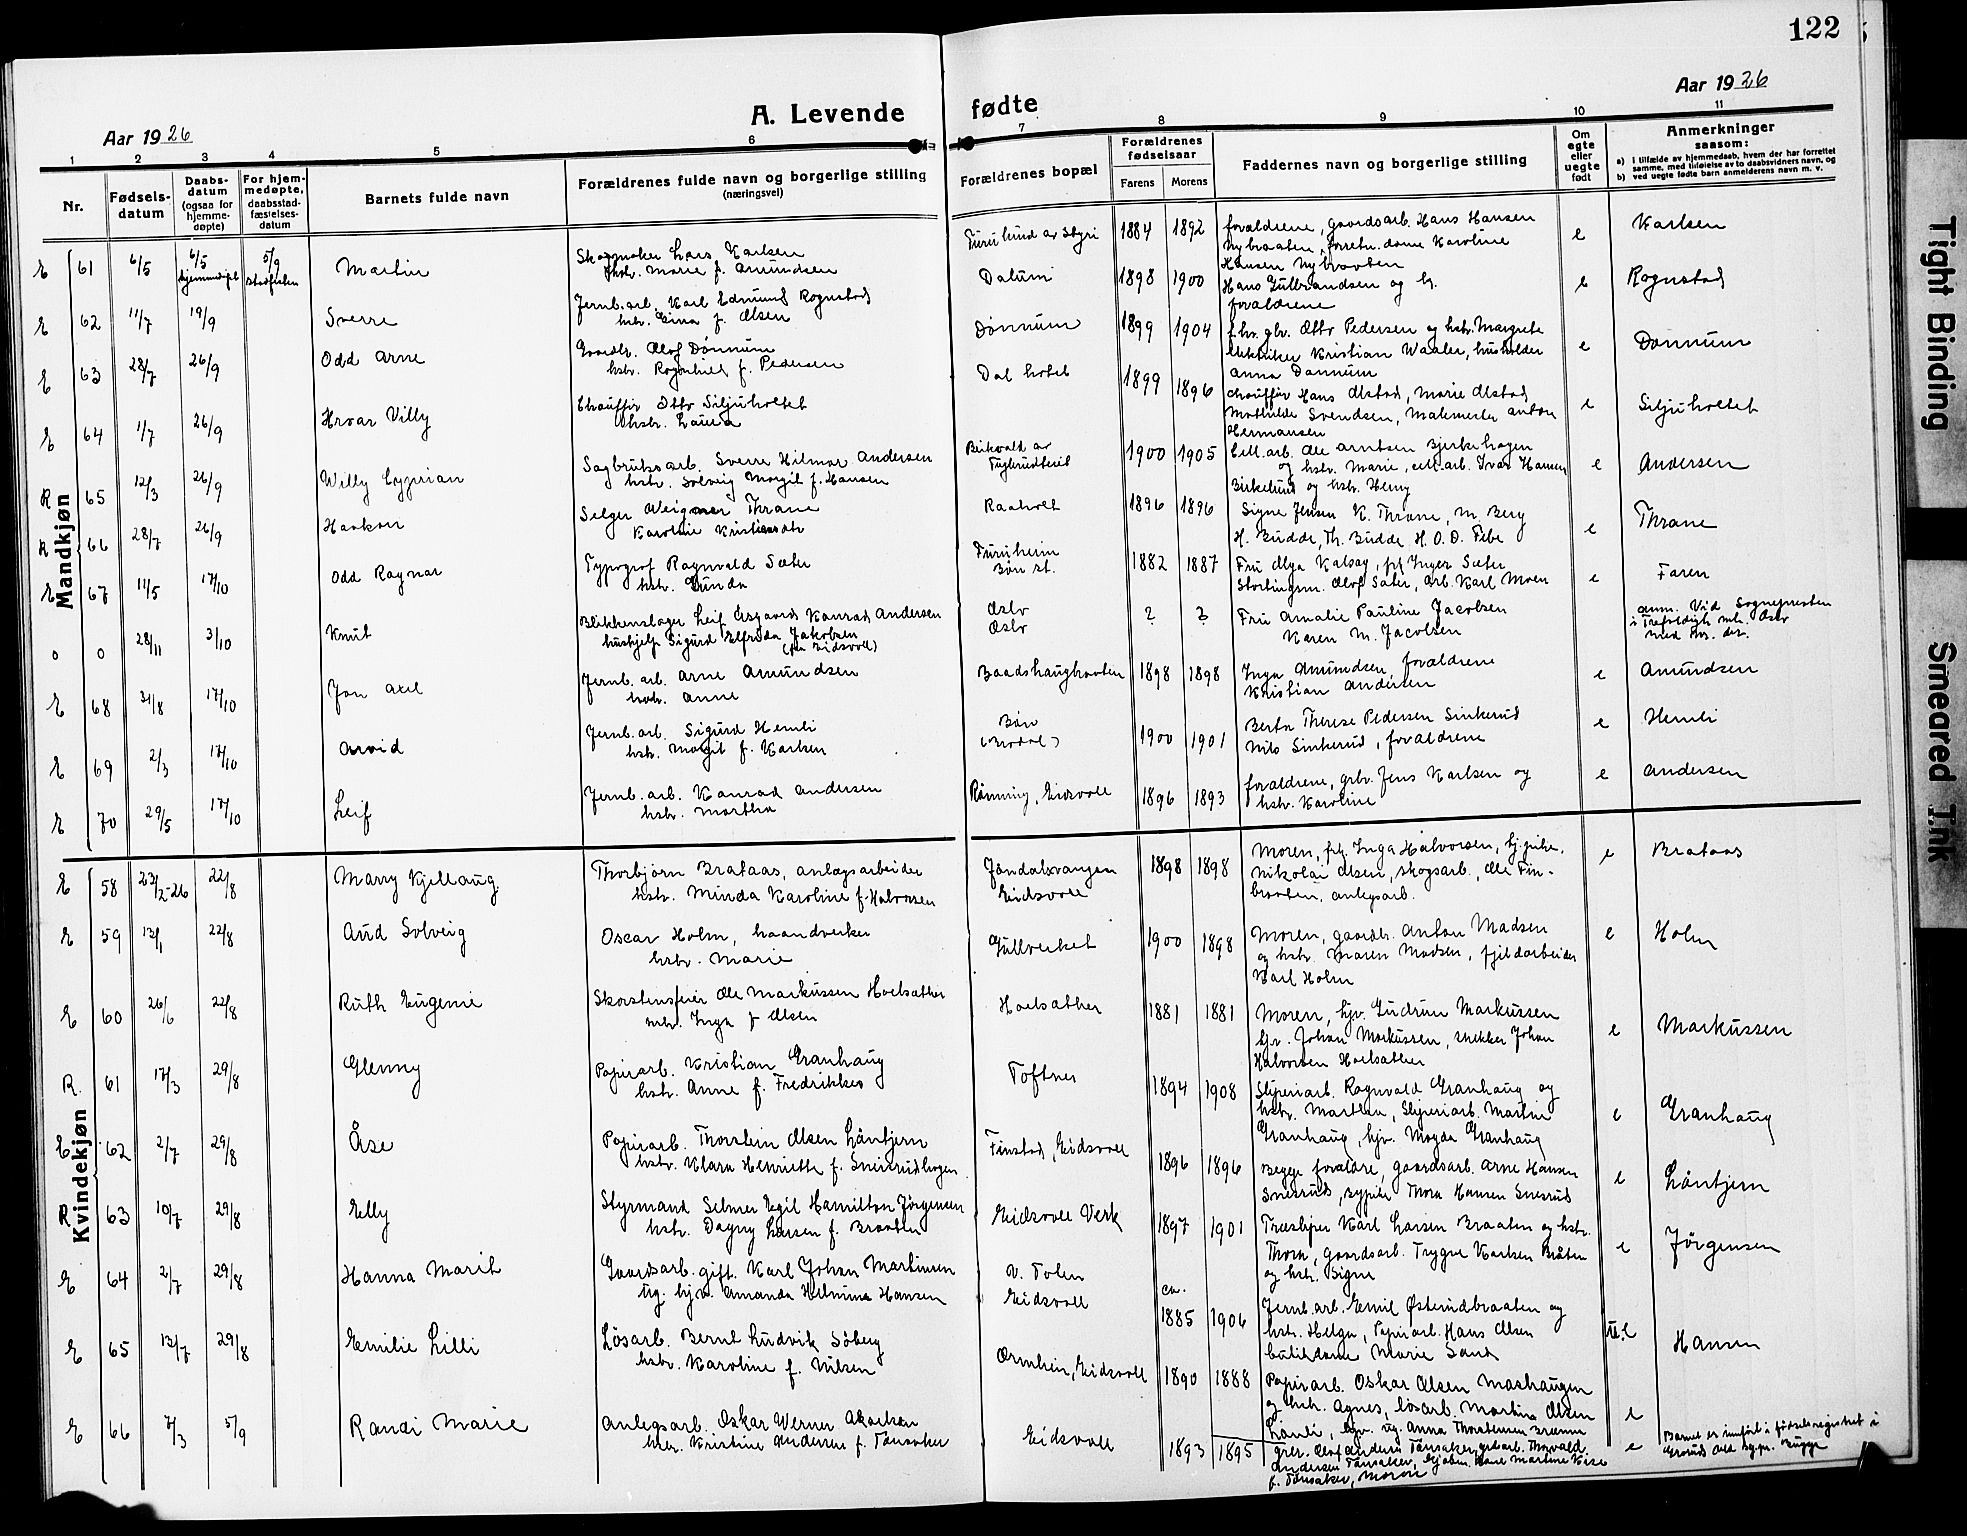 122
Aar 1926
Aar 1926
A. Levende fødte
1 2 3 4 5 6 7 8 9 10 11
Nr.
Fødselsdatum
Daabsdatum (ogsaa for hjemmedøpte)
For hjemmedøpte, daabsstadfæstelsesdatum
Barnets fulde navn
Forældrenes fulde navn og borgerlige stilling (næringsvei)
Forældrenes bopæl
Forældrenes fødselsaar
Farens Morens
Faddernes navn og borgerlige stilling
Om egte eller uegte født
Anmerkninger saasom:
a) i tilfælde av hjemmedaab, hvem der har forrettet samme, med tilføielse av to daabsvidners navn, og
b) ved uegte fødte barn anmelderens navn m. v.
Mandkjøn
E 61 6/5 6/5 hjemmedøpt 5/9 stadfesten Martin
Skogvokter Lars Karlsen
hstr. Marie f. Amundsen
Furulund av Styri 1884 1892
forældrene, gaardsarb. Hans Hansen
Nybraaten, forretn.dame Karoline
Hansen Nybraaten
e Karlsen
E 62 11/7 19/9 Sverre
Jernb.arb. Karl Edmund Rognstad
hstr. Gina f. Olsen
Dalum 1898 1900
Hans Gulbrandsen og h.
forældrene
e Rognstad
E 63 28/7 26/9 Odd Arne
Gaardbr. Olof Dønnum
hstr. Ragnhild f. Pedersen
Dønnum 1899 1904
f.hv. gbr. Otto Pedersen og hstr. Margrete
elektriker Kristian Waaler, husholder
Anna Dønnum
e Dønnum
E 64 1/7 26/9 Hroar Villy
Chauffør Otto Siljuholtet
hstr. Laura
Dal hotel 1899 1896
chauffør Hans Olstad, Marie Olstad
Mathilde Svendsen, Malemester Anton
Hermansen
e Siljuholtet
R 65 12/3 26/9 Willy Cyprian
Sagbruksarb. Sverre Hilmar Andersen
hstr. Solveig Margit f. Hansen
Birkvold av 1900 1905
Cell.arb. Ole Arntsen Bjerkehagen
og hstr. Marie, cell.arb. Ivar Hansen
Birkelund og hstr. Henny
e Andersen
R 66 28/7 26/9 Haakon
Selger Thrane
Karoline
Raaholt 1896 1896
Signe Jensen K. Thrane, M. Berg
H. Budde, Th. Budde, H. O. D.
e Thrane
E 67 11/5 17/10 Odd Ragnar
Typograf Ragnvald Sæter
hstr. Gunda
Furuheim
Bøn st. 1882 1887
Fru Olga Kalsag, frk Inger Sæter
Stortingsm. Olof Sæter, arb. Karl Moen
e Faren
o o 28/11 3/10 Knut
Blikkenslager Leif Asgaard Konrad Andersen
hushjelp Sigurd Elfrida Jakobsen
(fra Eidsvoll)
Oslo
Oslo
? ?
Fru Amalie Pauline Jacobsen
Karen M. Jacobsen
anm. Vid Sognepresten
i Trefoldigh. mh. Oslo
E 68 31/8 17/10 Jon Axel
Jernb. arb. Arne Amundsen
hstr. Anne
Baadshaugbraaten 1898 1898
Inga Amundsen, forældrene
Kristian Andersen
e Amundsen
E 69 2/3 17/10 Arvid
Jernb. arb. Sigurd Hemli
hstr. Margit f. Karlsen
Bøn
1900 1901
Berta Therese Pedersen Sinkerud
Nils Sinkerud, forældrene
e Hemli
E 70 29/5 17/10 Leif
Jernb. arb. Konrad Andersen
hstr. Martha
Rønning, Eidsvoll 1896 1893
forældrene, grbr. Jens Karlsen og
hstr. Karoline
e Andersen
Kvindekjøn
E 58 23/2-26 22/8 Marry Kjellaug
Thorbjørn Brataas, anlægsarbeider
hstr. Minda Karoline f. Halvorsen
Jøndalsvangen
Eidsvoll
1898 1898
Moren, frk. Inga Halvorsen, hj.pike,
Nikolai Olsen, skogsarb., Ole Finbraaten, anlegsarb.
e Brataas
E 59 13/1 22/8 Aud Solveig
Oscar Holm, haandverker
hstr. Marie
Gullverket 1900 1898
Moren, gaardbr. Anton Madsen
og hstr. Maren Madsen, fjeldarbeider
Karl Holm
e Holm
E 60 26/6 22/8 Ruth Eugenie
Skorstensfeier Ole Markussen Hoelsæther
hstr. Inga f Olsen
Hoelsæther 1881 1881
Moren, hjv. Gudrun Markussen
hjv. Johan Markussen, snekker Johan
Halvorsen Hoelsæther
e Markussen
R. 61 17/3 29/8 Glenny
Papirarb. Kristian Granhaug
hstr. Anne f. Fredrikkes
Toftnes 1894 1908
Sliperiarb. Ragnvald Granhaug og
hstr. Marthea, Sliperiarb. Martin
Granhaug, hjv. Magda Granhaug
e Granhaug
E 62 2/7 29/8 Åse
Papirarb. Thorstein Olsen Løntjern
hstr. Klara Henriette f. Snesrudhagen
Finstad, Eidsvoll 1896 1896
Begge forældre, gaardsarb. Arne Hansen
Snesrud, sypike Thora Hansen Snesrud
e Løntjern
R 63 10/7 29/8 Elly
Styrmand Selmer Egil Hamilton Jørgensen
hstr. Dagny Larsen f. Braaten
Eidsvoll Verk 1897 1901
Træsliper Karl Larsen Braaten og hstr.
Thora, gaardsarb. Trygve Karlsen Bråten
og hstr. Signe
e Jørgensen
E 64 2/7 29/8 Hanna Marit
Gaardsarb. gift. Karl Johan Martinsen
ug. hjv. Amanda Helmine Hansen
v. Tolen
Eidsvoll
ca. 1885 1906
Jernb.arb. Emil Østerudbraaten og
hstr. Helga, Papirarb. Hans Olsen
butikdame Marie Sand
u.e Hansen
E 65 13/7 29/8 Emilie Lilli
Løsarb. Bernt Ludvik Søberg
hstr. Karoline f. Nilsen
Ormlien, Eidsvoll 1890 1888
Papirarb. Oskar Olsen Mashaugen
og hstr. Agnes, løsarb. Martin Olsen
hjv. ug. Anna Thorstensen
e
E 66 7/3 5/9 Randi Marie
Anlegsarb. Oskar Werner Akselson
hstr. Kristine Andersen f. Tønsaker
Eidsvoll 1893 1895
grbr. Olof Anders Tønsaker, gaardsarb. Thorvald
Andersen Tønsaker, Martine Kise
f. Tønsaker, moren
e
Barnet er innført i fødselsregistret i
Grorud Bugge
Tight Binding
Smeared Ink